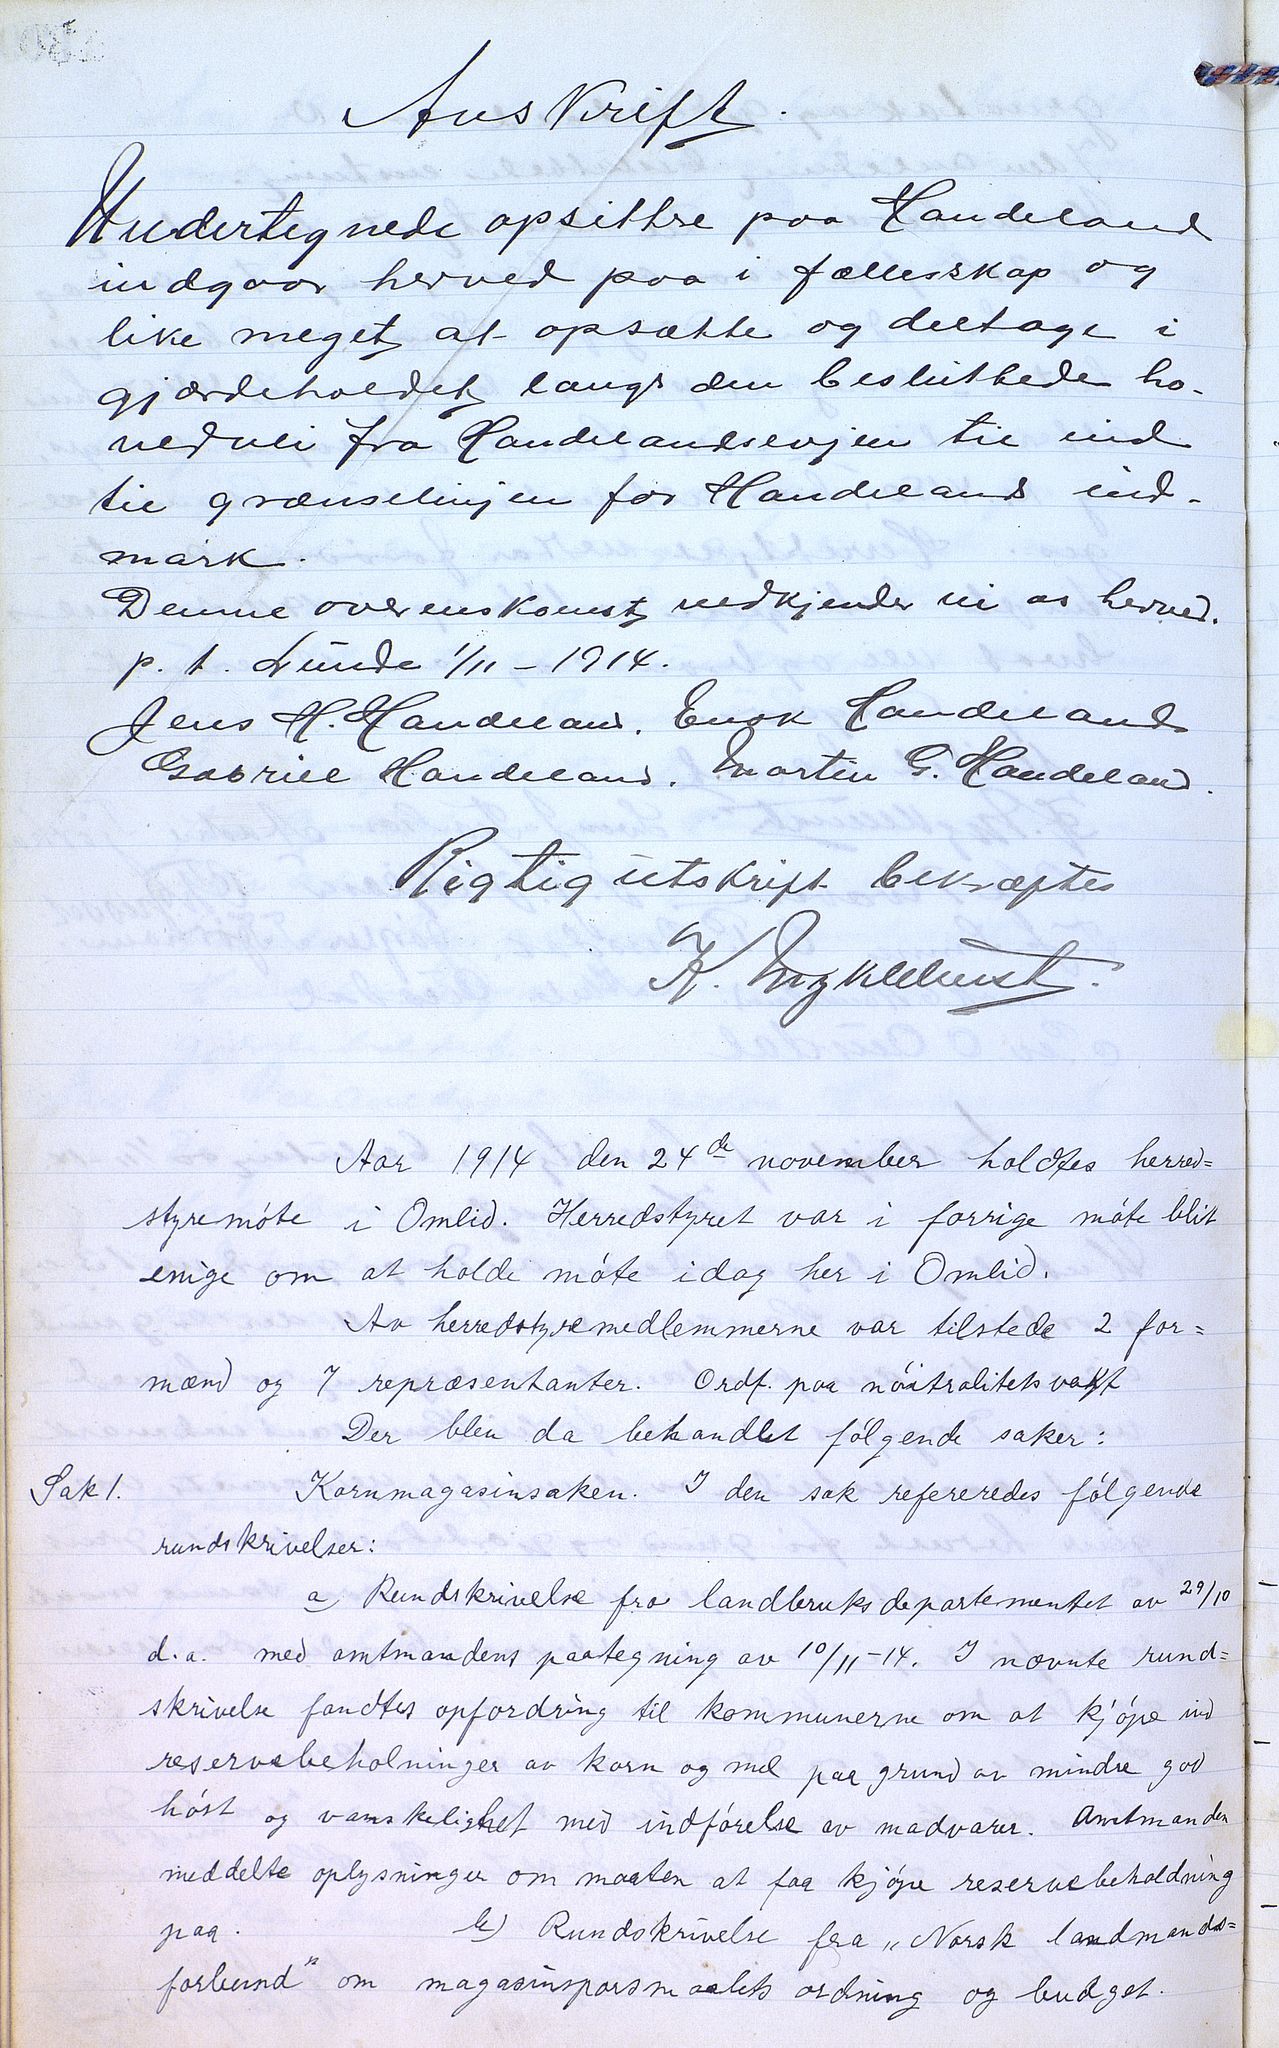 Avskrift.
Undertegnede opsittere paa Handeland
indgaar herved paa i fællesskap og
like meget at opsætte og deltage i
gjærdeholdet langs den besluttede ho-
vedvei fra Handelandsevjen til ind
til grænselinjen for Handelands ind-
mark.
Denne overenskomst vedkjender vi os herved.
p. t. Lunde 1/11 - 1914.
Jens H. Handeland. Enok Handeland
Gabriel Handeland. Martin G. Handeland.
Rigtig utskrift bekræftes
K.
Aar 1914 den 24de november holdtes herred=
styremöte i Omlid. Herredstyret var i forrige möte blit
enige om at holde möte idag her i Omlid.
Av herredstyremedlemmerne var tilstede 2 for=
mænd og 7 repræsentanter. Ordf. paa nöitralitetsvakt
Der blev da behandlet fölgende saker:
Sak 1. Kornmagasinsaken. I den sak refereredes fölgende
rundskrivelser:
a) Rundskrivelse fra landbruksdepartementet av 29/10
d.a. med amtmandens paategning av 10/11-14. I nævnte rund=
skrivelse fandtes opfordring til kommunerne om at kjöpe ind
reservebeholninger av korn og mel paa grund av mindre god
höst og vanskelighet med indförelse av madvarer. Amtmanden
meddelte oplysninger om maaten at faa kjöpe reservebeholdning
paa. b) Rundskrivelse fra „Norsk landmands=
forbund" om magasinspørsmaalets ordning og budget.